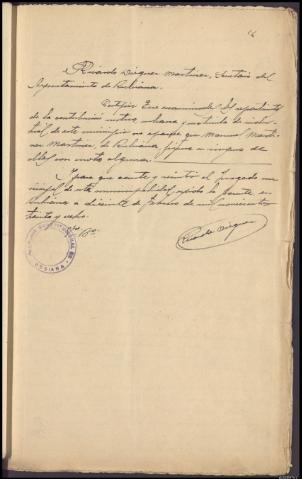 Ricardo Diéguez Martinez, Secretario del
Ayuntamiento de Rubiana.
Certifico: Que examinado el expediente
de la contribución rustica, urbana, industrial
de este municipio no aparece que Manuel Marti-
nez Martinez, de Rubiana, figure en ninguna de
ellas con cuota alguna.
Y para que conste y remitir al juzgado mu-
nicipal de este municipal expido la presente en
Rubiana a diecisiete de de mil novecientos
treinta y ocho.
Vº Bº
Ricardo Diéguez
RUBIANA